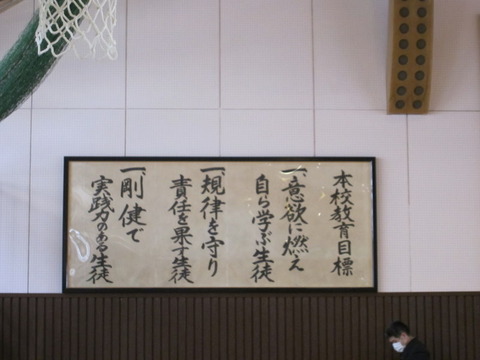 本校教育目標
一、意欲に燃え
自ら学ぶ生徒
一、規律を守り
責任を果す生徒
一、剛健で
実践力のある生徒